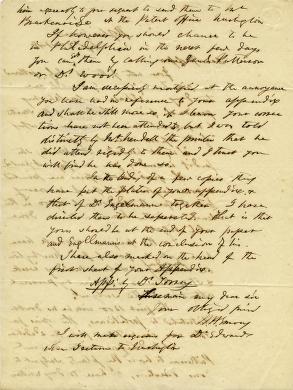 him expressly to pre request to send them to Mr
Brackenridge at the Patent office Washington
If however you should chance to be
in Philadelphia in the next few days
you can them by calling on
or Dr Wood
I am deeply mortified at the annoyance
you have had in reference to your appendix
and shall be still more so if I learn your correc
tions have not been attended to, but I was told
distinctly by the printer that he
did attend rigidly to them, and I trust you
will find he has done so.
In the body of a few copies they
have put the plates of your appendix &
that of Dr Engelmann together. I have
directed them to be separated. that is that
yours should be at the end of your paper
and Engelmanns at the conclusion of his.
I have also marked on the head of the
first sheet of your Appendix
App. by Dr. Torrey
my dear sir
your obliged friend
I will make inquiries for Dr Edwards